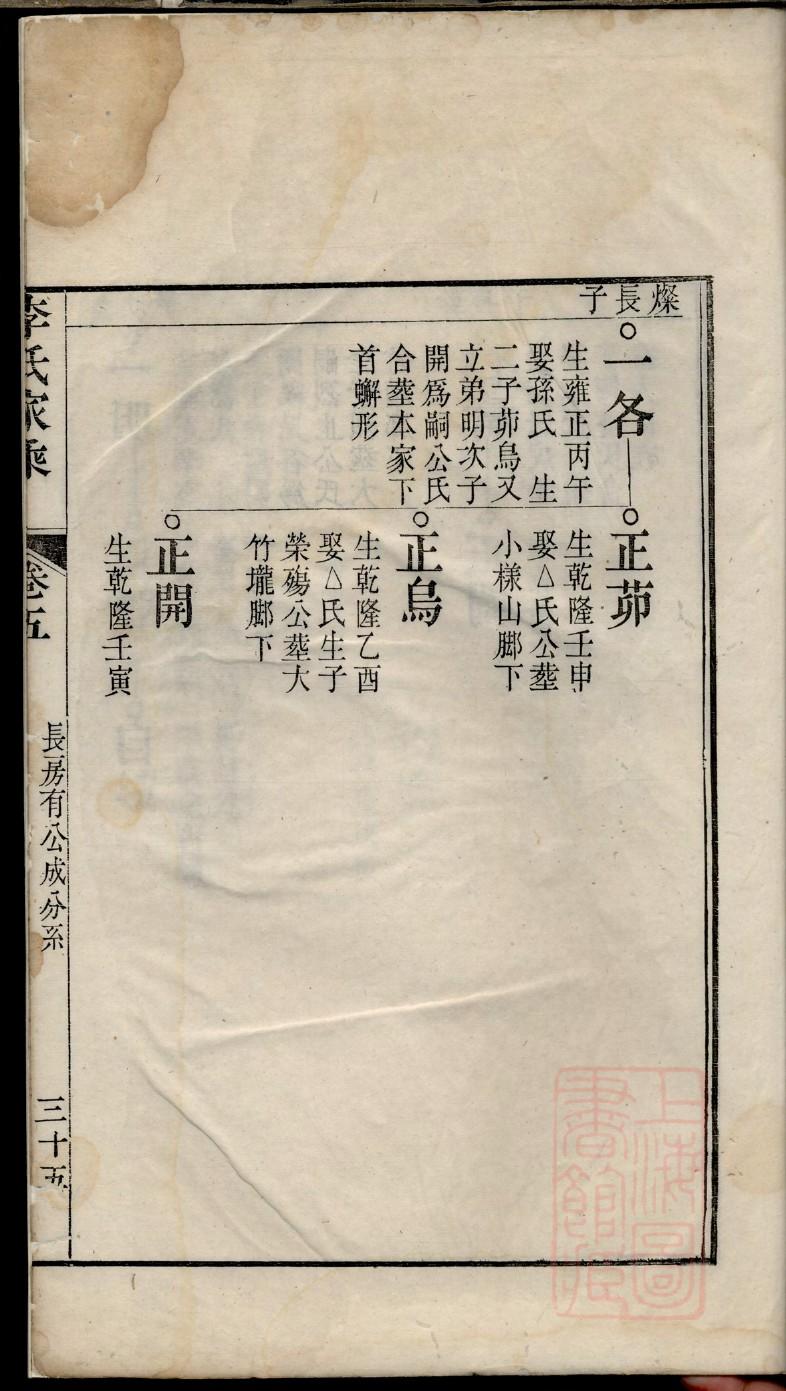 燦長子
一各
生雍正丙午
娶孫氏　生
二子茆烏又
立弟明次子
開爲嗣公氏
合塟本家下
首蠏形
正茆
生乾隆壬申
娶△氏公塟
小樣山脚下
正烏
生乾隆乙酉
娶△氏生子
榮殤公塟大
竹壠脚下
正開
生乾隆壬寅
李氏家乘
卷五
長房有公成分系
三十五
上海圖
書館藏